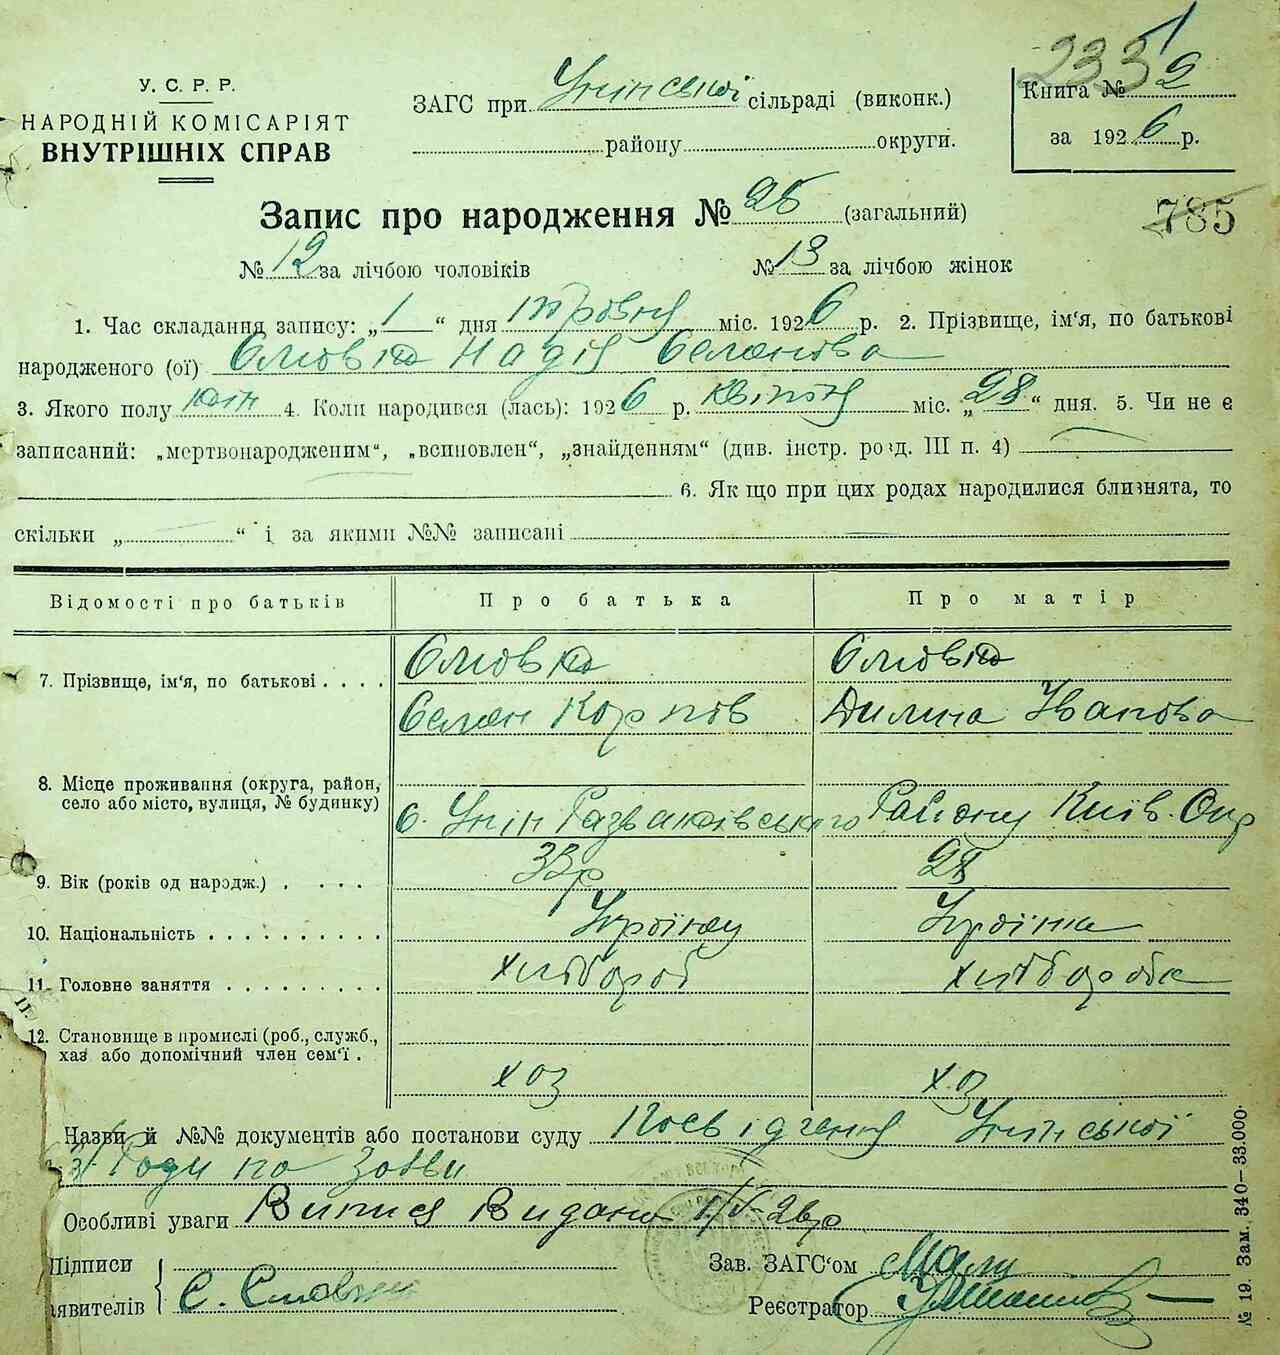 2335
У. С. Р. Р.
НАРОДНІЙ КОМІСАРІЯТ
ВНУТРІШНІХ СПРАВ
ЗАГС при Унінської сільраді (виконк.)
району округи.
Книга № 2
за 1926 р.
Запис про народження № 25 (загальний)
785
№ 12 за лічбою чоловіків № 13 за лічбою жінок
1. Час складання запису: „1“ дня травня міс. 1926 р. 2. Прізвище, ім'я, по батькові
народженого (ої) Надія
3. Якого полу жін 4. Коли народився (лась): 1926 р. квітня міс. „28“ дня. 5. Чи не є
записаний: „мертвонародженим“, „всиновлен“, „знайденням“ (див. інстр. розд. III п. 4)
6. Якщо при цих родах народилися близнята, то
скільки „ “ і за якими №№ записані
Відомості про батьків Про батька Про матір
7. Прізвище, ім'я, по батькові
Семен Карпов Іванова
8. Місце проживання (округа, район,
село або місто, вулиця, № будинку)
с. Унін Району Київ. Окр
9. Вік (років од народж.) 33р 28
10. Національність Українец Українка
11. Головне заняття хлібороб хліборобка
12. Становище в промислі (роб., служб.,
хаз або допомічний член сем'ї.
хоз хоз
Назви й №№ документів або постанови суду Посвідчення Унінської
С/Ради по заяви
Особливі уваги Випися Видана 1/V-26р
Підписи
заявителів С.
Зав. ЗАГС'ом
Реєстратор
№ 19. Зам. 340—33.000.